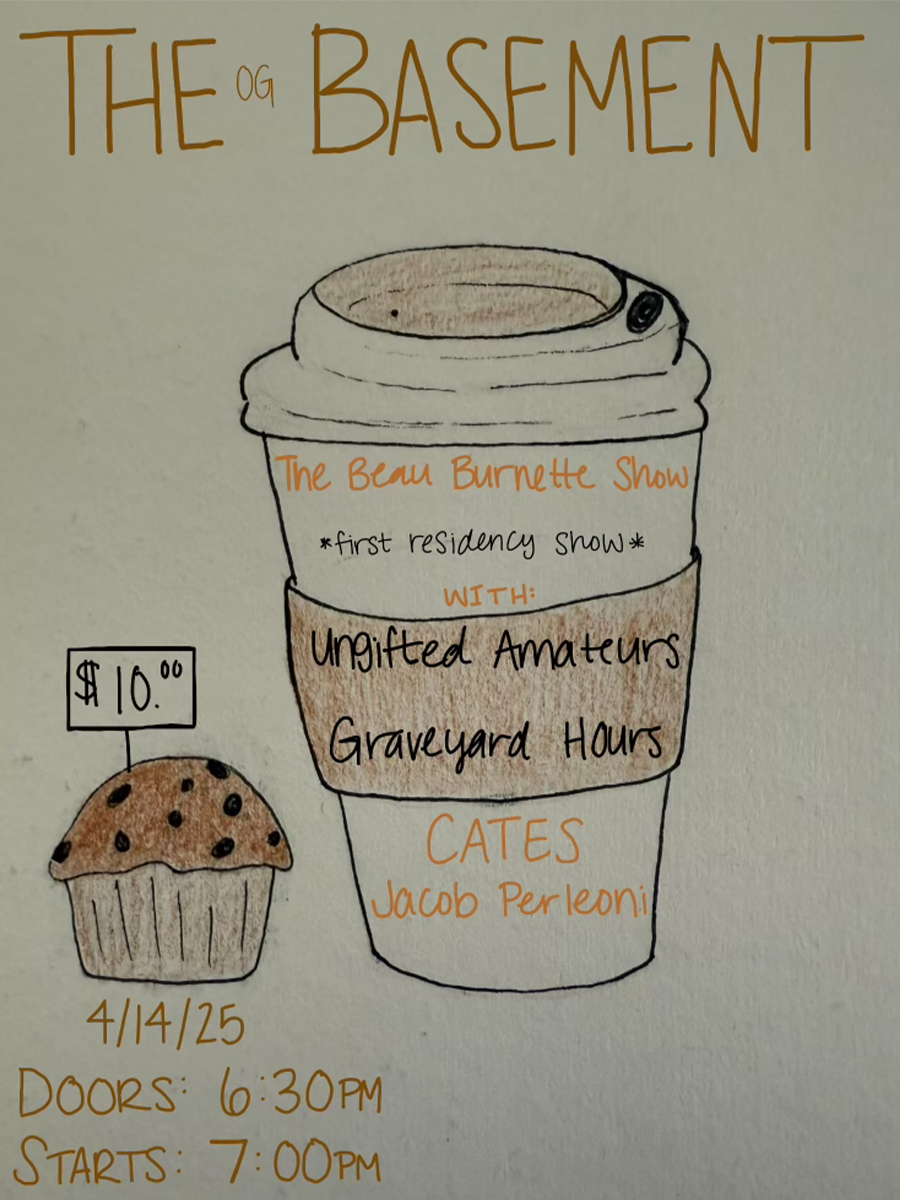 THE OG BASEMENT
The Beau Burnette Show
*first residency show*
WITH:
Ungifted Amateurs
Graveyard Hours
$10.00
CATES
Jacob Perleoni
4/14/25
DOORS: 6:30PM
STARTS: 7:00PM